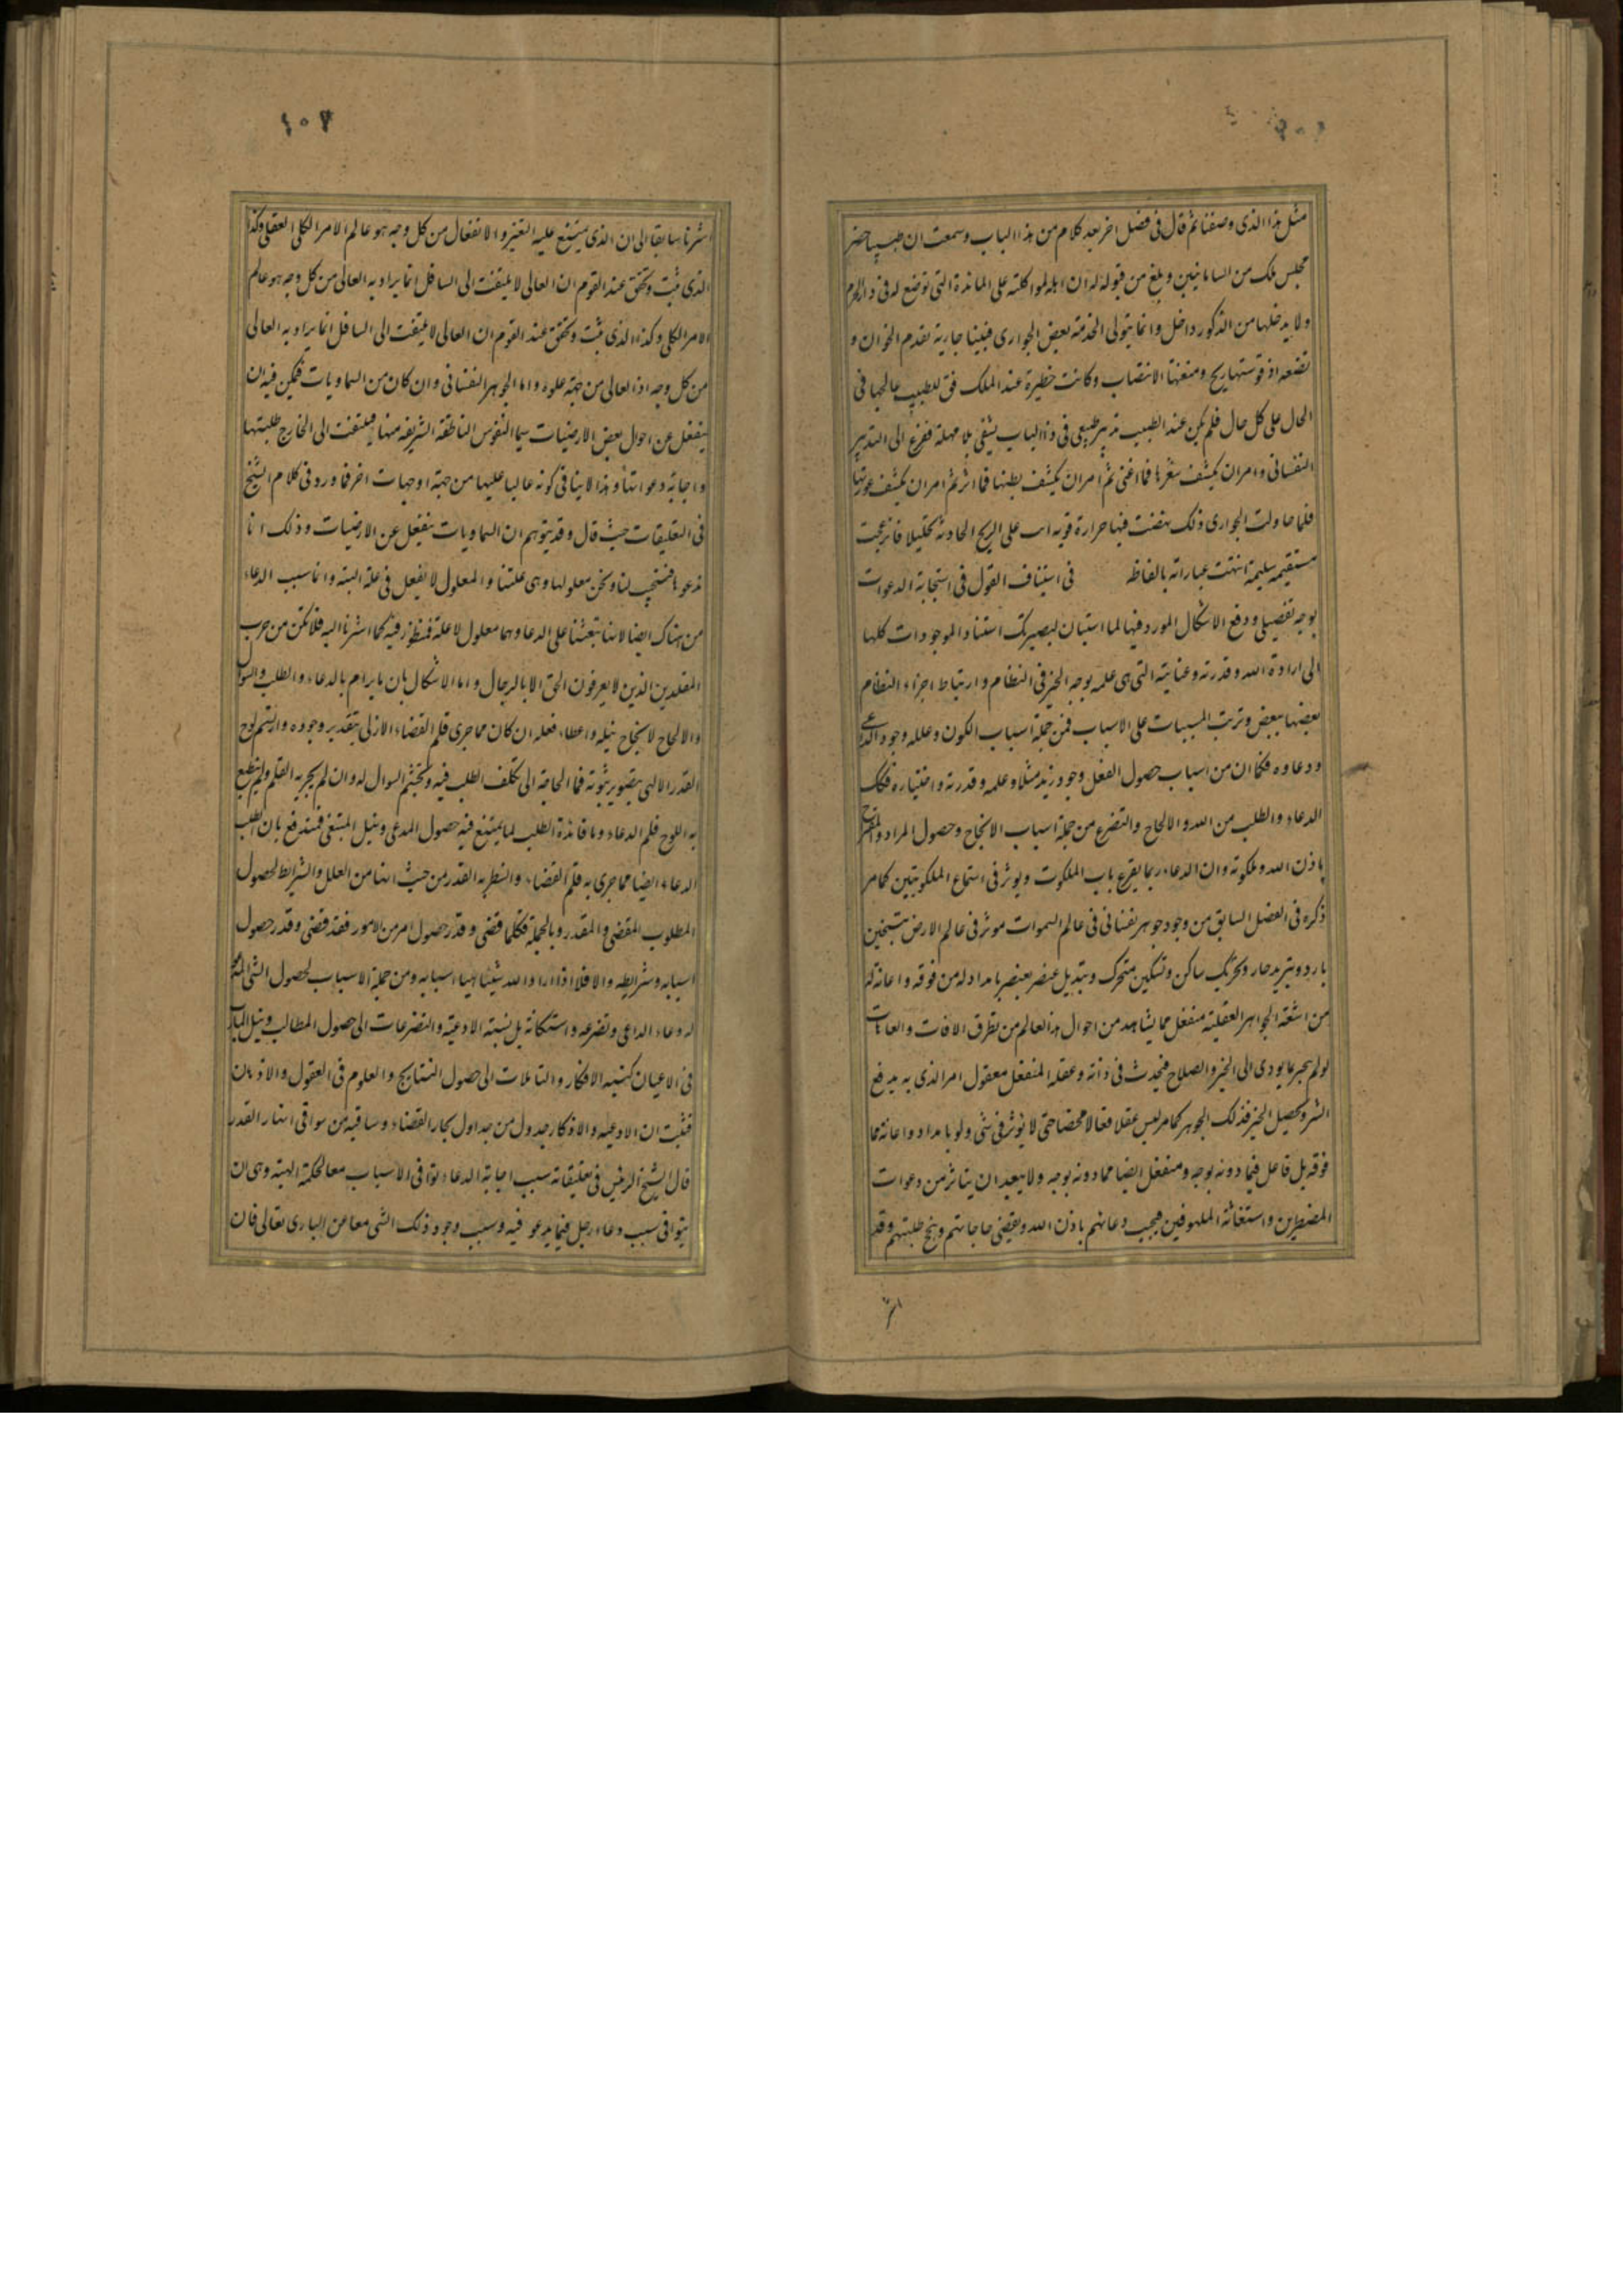 مثل هذا الذی وصفنا ثم قال فی فصل اخر بعد کلام من هذا الباب وسمعت ان طبیبا حضر
مجلس ملک من السامانیین وبلغ من قبوله له ان اهله لمواکلته علی المائدة التی توضع له فی دار الحرم
ولا یدخلها من الذکور داخل وانما یتولی الخدمة بعض الجواری فبینا جاریة تقدم الخوان و
تضعه اذ قوستها ریح ومنعتها الانتصاب وکانت خطیرة عند الملک فق للطبیب عالجها فی
الحال علی کل حال فلم یکن عند الطبیب تدبیر طبیعی فی ذا الباب یشفی بلا مهلة ففزع الی التدبیر
النفسانی وامر ان یکشف شعرها فما اغنی ثم امر ان یکشف بطنها فما اثر ثم امر ان یکشف عورتها
فلما حاولت الجواری ذلک نهضت فیها حرارة قویه اتت علی الریح الحادثة تحلیلا فانزعجت
مستقیمه سلیمة انتهت عباراته بالفاظه فی استیناف القول فی استجابة الدعوات
بوجه تفصیلی ودفع الاشکال المورد فیها لما استبان لبصیرتک استناد الموجودات کلها
الی ارادة الله وقدرته وعنایته التی هی علمه بوجه الخیر فی النظام وارتباط اجزاء النظام
بعضها ببعض وترتب المسببات علی الاسباب فمن جملة اسباب الکون وعلله وجود الداعی
ودعاوه فکما ان من اسباب حصول الفعل وجود زید مثلا وعلمه وقدرته واختیاره فکک
الدعاء والطلب من الله والالحاح والتضرع من جملة اسباب الانجاح وحصول المراد والمقترح
باذن الله وملکوته وان الدعاء ربما یقرع باب الملکوت ویوثر فی استماع الملکوتیین کما مر
ذکره فی الفصل السابق من وجود جوهر نفسانی فی عالم السموات موثر فی عالم الارض بتسخین
بارد وتبرید حار وتحریک ساکن وتسکین متحرک وتبدیل عنصر بعنصر بامداد له من فوقه واعانة له
من اشعة الجواهر العقلیة منفعل مما یشاهد من احوال هذا العالم من تطرق الافات والعاهات
لو لم یجبر ما یودی الی الخیر والصلاح فیحدث فی ذاته وعقله المنفعل معقول امر الذی به یدفع
الشر ویحصل الخیر فذلک الجوهر کما مر لیس عقلا فعالا محضا حتی لا یوثر فی شی ولو بامداد واعانة مما
فوقه بل فاعل فیما دونه بوجه ومنفعل ایضا مما دونه بوجه ولا یبعد ان یتاثر من دعوات
المضطرین واستغاثة الملهوفین فیجیب دعائهم باذن الله ویقضی حاجاتهم وینجح طلبتهم وقد
۱۰۷
اشرنا سابقا الی ان الذی یمتنع علیه التغیر والانفعال من کل وجه هو عالم الامر الکلی العقلی وکذا
الذی ثبت وتحقق عند القوم ان العالی لا یلتفت الی السافل انما یراد به العالی من کل وجه هو عالم
الامر الکلی وکذا الذی ثبت وتحقق عند القوم ان العالی لا یلتفت الی السافل انما یراد به العالی
من کل وجه اذ العالی من جهة علوه واما الجوهر النفسانی وان کان من السماویات فیمکن فیه ان
ینفعل عن احوال بعض الارضیات سیما النفوس الناطقة الشریفه منها فیلتفت الی الخارج طلبتها
واجابة دعواتها وهذا لا ینافی کونه عالیا علیها من جهة او جهات اخر فما ورد فی کلام الشیخ
فی التعلیقات حیث قال وقد یتوهم ان السماویات ینفعل عن الارضیات وذلک انا
ندعوها فتستجیب لنا ونحن معلولها وهی علتنا والمعلول لا یفعل فی علة البته وانما سبب الدعاء
من هناک ایضا لانها تبعثنا علی الدعاء وهما معلولا علة فمنظور فیه کما اشرنا الیه فلا تکن من حزب
المقلدین الذین لا یعرفون الحق الا بالرجال واما الاشکال بان ما یرام بالدعاء والطلب والسوال
والالحاح لانجاح نیله واعطاء فعله ان کان مما جری قلم القضاء الازلی بتقدیر وجوده وارتسم لوح
القدر الالهی بتصویر ثبوته فما الحاجة الی تکلف الطلب فیه وتجشم السوال له وان لم یجر به القلم ولم ینطبع
به اللوح فلم الدعاء وما فائدة الطلب لما یمتنع فیه حصول المدعی ونیل المبتغی فمندفع بان الطلب
الدعاء ایضا مما جری به قلم القضاء والسطر به القدر من حیث انها من العلل والشرائط لحصول
المطلوب المقضی والمقدر وبالجملة فکلما قضی وقدر حصول امر من الامور فقد قضی وقدر حصول
اسبابه وشرایطه والا فلا اذا اراد الله شیئا هیاء اسبابه ومن جملة الاسباب لحصول الشی
له دعاء الداعی وتضرعه واستکانة بل نسبة الادعیة والتضرعات الی حصول المطالب ونیل المارب
فی الاعیان کنسبه الافکار والتاملات الی حصول النتایج والعلوم فی العقول والاذهان
فثبت ان الادعیه والاذکار جدول من جداول بحار القضاء وساقیه من سواقی انهار القدر
قال الشیخ الرئیس فی تعلیقاته سبب اجابة الدعاء توافی الاسباب معا لحکمة الهیة وهی ان
یتوافی سبب دعاء رجل فیما یدعو فیه وسبب وجود ذلک الشی معا عن الباری تعالی فان